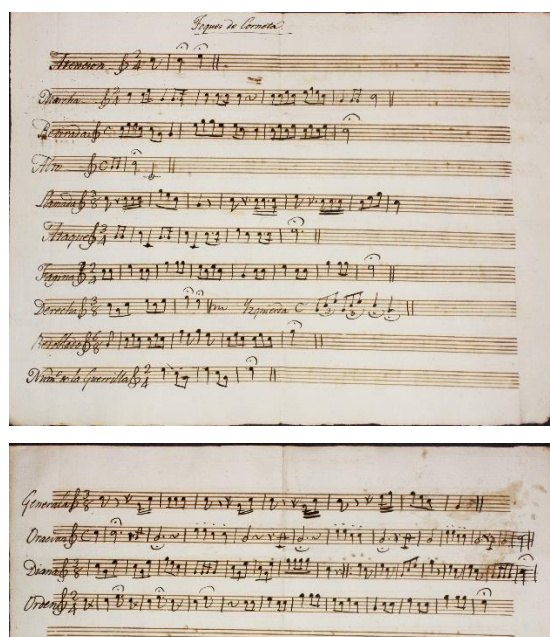 Toques de Corneta.
Atencion
Marcha
Retirada
Alto
Llamada
Ataque
Fagina
Derecha Yzquierda
de la Guerrilla
Generala
Oracion
Diana
Orden